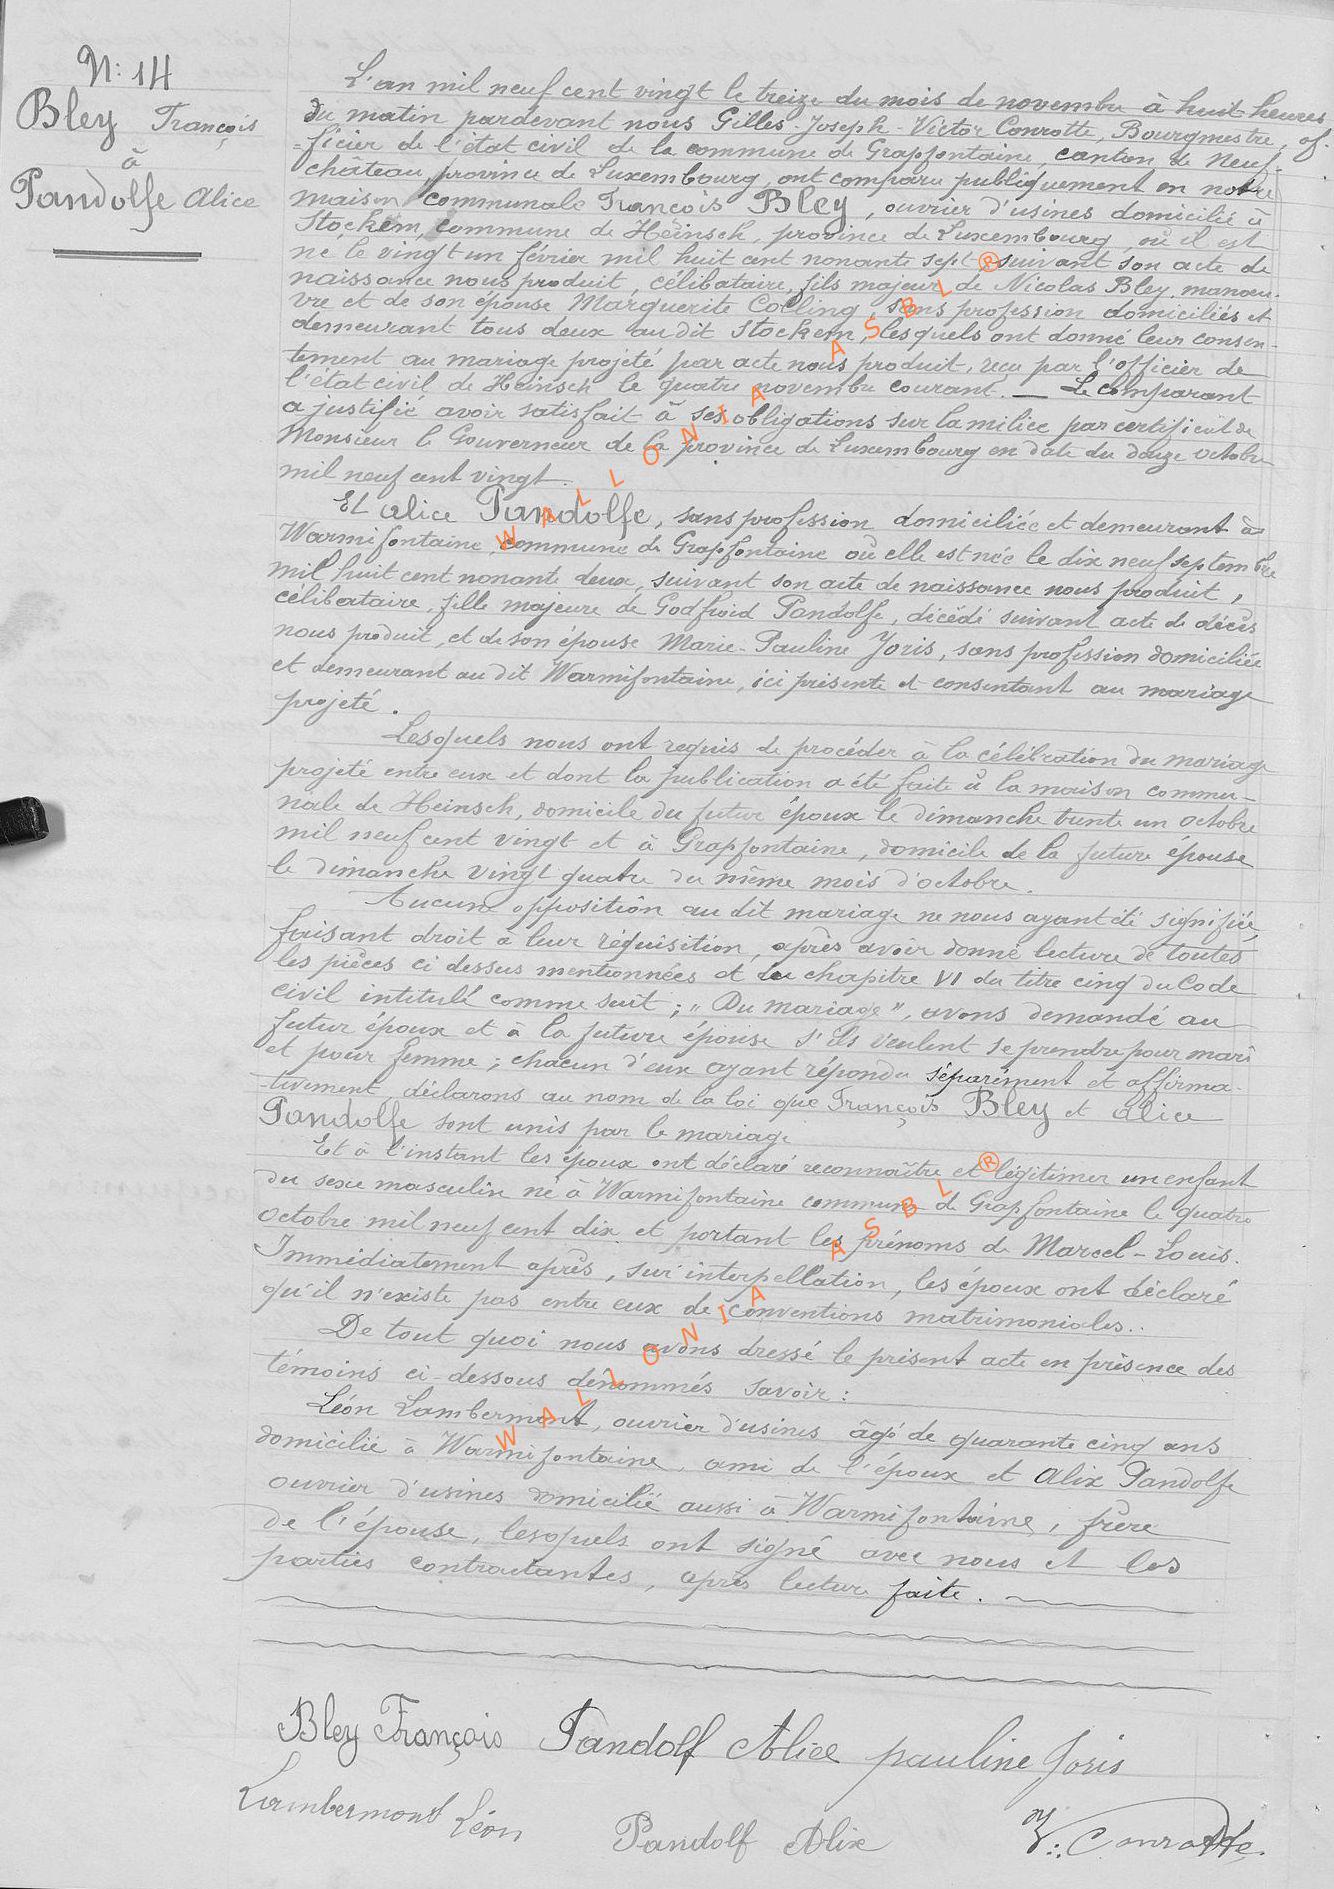 N: 14
Bley François
à
Pandolfe Alice
L'an mil neuf cent vingt le treize du mois de novembre à huit heures
du matin pardevant nous Gilles-Joseph-Victor Conrotte, Bourgmestre, of-
=ficier de l'état civil de la commune de Grapfontaine, canton de Neuf-
château, province de Luxembourg, ont comparu publiquement en notre
maison communale François Bley, ouvrier d'usines domicilié à
Stockem, commune de Heinsch, province de Luxembourg, où il est
né le vingt un février mil huit cent nonante sept suivant son acte de
naissance nous produit, célibataire, fils majeur de Nicolas Bley, manoeu-
vre et de son épouse Marguerite Colling, sans profession domiciliés et
demeurant tous deux au dit Stockem, lesquels ont donné leur consen-
tement au mariage projeté par acte nous produit, reçu par l'officier de
l'état civil de Heinsch le quatre novembre courant. — Le comparant
a justifié avoir satisfait à ses obligations sur la milice par certificat de
Monsieur le Gouverneur de la province de Luxembourg en date du douze octobre
mil neuf cent vingt.
Et Alice Pandolfe, sans profession domiciliée et demeurant à
Warmifontaine, commune de Grapfontaine où elle est née le dix neuf septembre
mil huit cent nonante deux, suivant son acte de naissance nous produit,
célibataire, fille majeure de Godfroid Pandolfe, décédé suivant acte de décès
nous produit, et de son épouse Marie-Pauline Joris, sans profession domiciliée
et demeurant au dit Warmifontaine, ici présente et consentant au mariage
projeté.
Lesquels nous ont requis de procéder à la célébration du mariage
projeté entre eux et dont la publication a été faite à la maison commu-
nale de Heinsch, domicile du futur époux le dimanche trente un octobre
mil neuf cent vingt et à Grapfontaine, domicile de la future épouse
le dimanche vingt quatre du même mois d'octobre.
Aucune opposition au dit mariage ne nous ayant été signifiée,
faisant droit à leur réquisition, après avoir donné lecture de toutes
les pièces ci dessus mentionnées et du chapitre VI du titre cinq du Code
civil intitulé comme suit; "Du mariage", avons demandé au
futur époux et à la future épouse s'ils veulent se prendre pour mari
et pour femme; chacun d'eux ayant répondu séparément et affirma-
-tivement, déclarons au nom de la loi que François Bley et Alice
Pandolfe sont unis par le mariage
Et à l'instant les époux ont déclaré reconnaître et légitimer un enfant
du sexe masculin né à Warmifontaine commune de Grapfontaine le quatre
octobre mil neuf cent dix et portant les prénoms de Marcel-Louis.
Immédiatement après, sur interpellation, les époux ont déclaré
qu'il n'existe pas entre eux de conventions matrimoniales..
De tout quoi nous avons dressé le présent acte en présence des
témoins ci-dessous dénommés savoir:
Léon Lambermont, ouvrier d'usines âgé de quarante cinq ans
domicilié à Warmifontaine, ami de l'époux et Alix Pandolfe
ouvrier d'usines domicilié aussi à Warmifontaine, frère
de l'épouse, lesquels ont signé avec nous et les
parties contractantes, après lecture faite.
Bley François Pandolf Alice pauline Joris
Lambermont Léon
Pandolf Alix
V. Conrotte
WALLONIA ASBL ®
WALLONIA ASBL ®